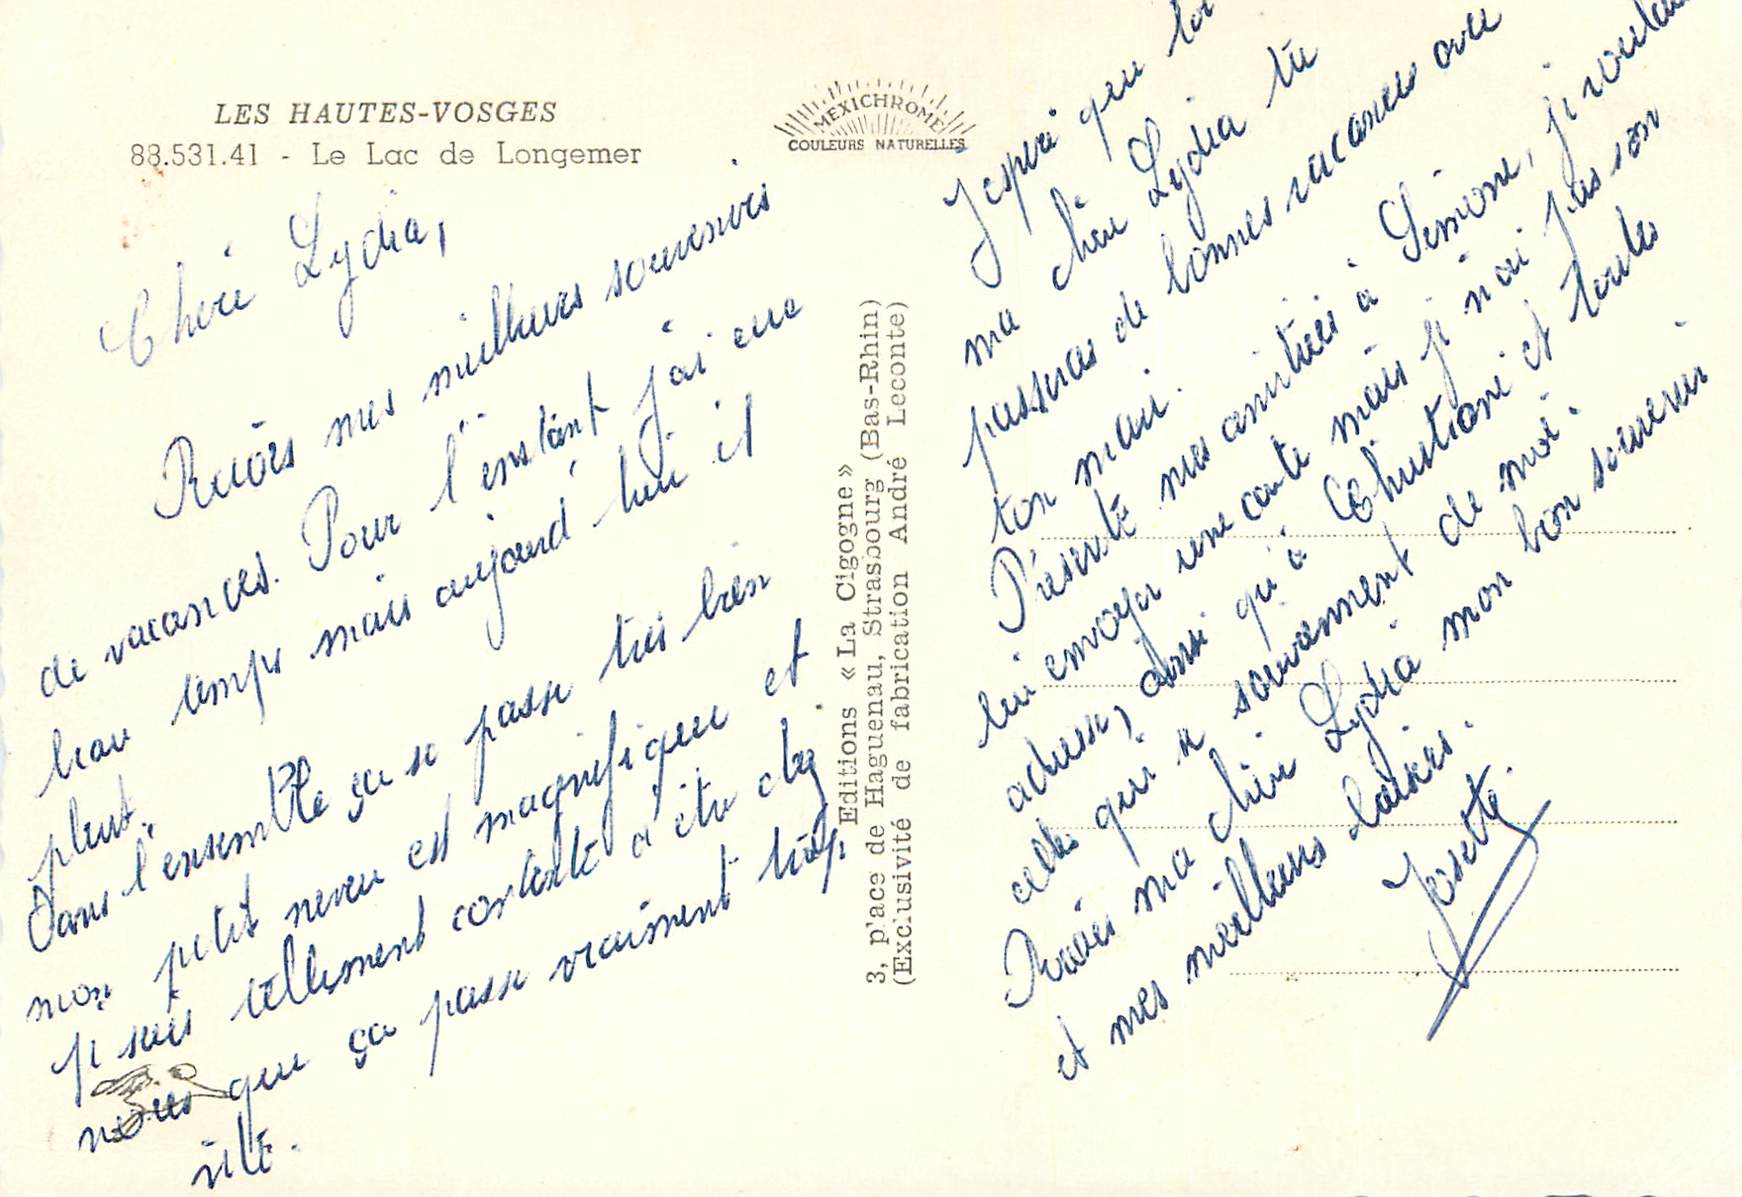 LES HAUTES-VOSGES
88.531.41 - Le Lac de Longemer
MEXICHROME
COULEURS NATURELLES
Chère Lydia,
Reçois mes meilleurs souvenirs
de vacances. Pour l'instant j'ai eue
beau temps mais aujourd'hui il
pleut.
Dans l'ensemble ça se passe très bien
mon petit neveu est magnifique et
je suis tellement contente d'être chez
nous que ça passe vraiment trop
vite.
Editions « La Cigogne »
3, place de Haguenau, Strasbourg (Bas-Rhin)
(Exclusivité de fabrication André Leconte)
J'espère que toi
ma chère Lydia tu
passeras de bonnes vacances avec
ton mari.
Présente mes amitiées à Simone, je voulais
lui envoyer une carte mais je n'ai pas son
adresse, ainsi qu'à Christiane et toutes
celles qui se souviennent de moi.
Reçois ma chère Lydia mon bon souvenir
et mes meilleurs baisers.
Josette